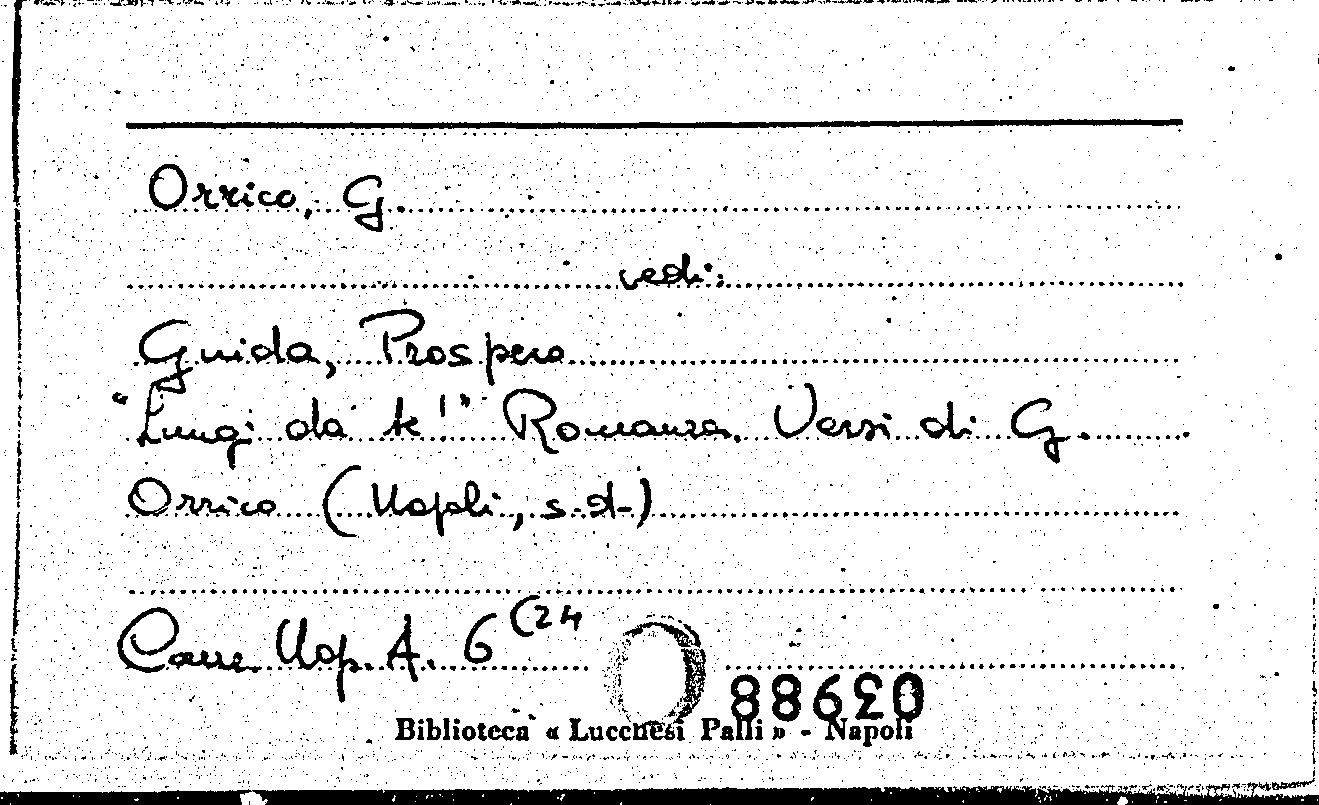 Orrico, G.
vedi:
Guida, Prospero
"Lungi da te!" Romanza. Versi di G.
Orrico (Napoli, s.d.)
Canz. Nap. A. 6 (24
Biblioteca « Lucchesi Palli » - Napoli